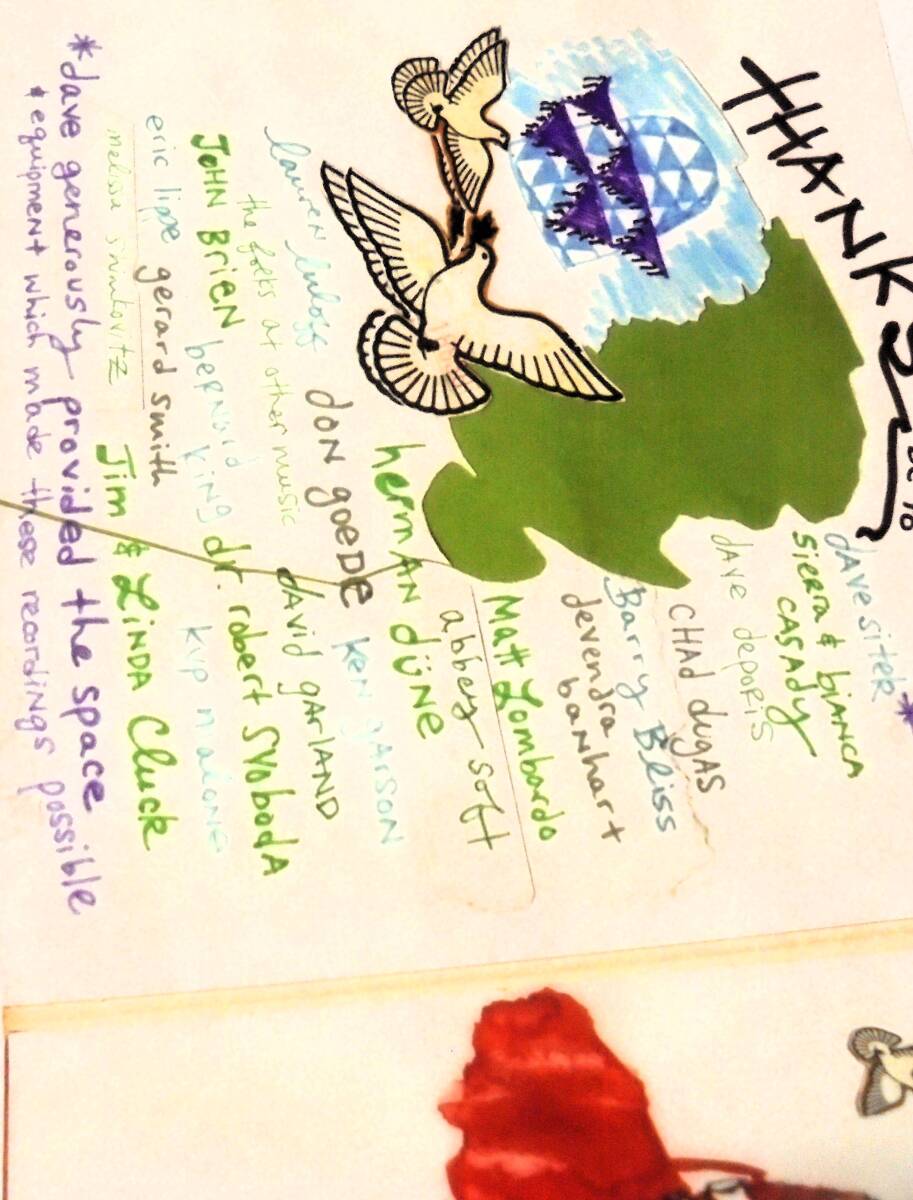 THANKS
dave sitek *
sierra & bianca
CASADY
dave deporis
CHAD dugAS
Barry Bliss
devendra
banhart
Matt Lombardo
abbey soft
hermAN düNe
DON goeDE
KEN
lauren
DAVID gARLAND
the folks at other music
JOHN BRIEN
dr. robert SVobodA
bernard king
kyp malone
eric lippe
gerard smith
Jim & LiNDA Cluck
melissa
*dave generously provided the space
& equipment which made these recordings possible